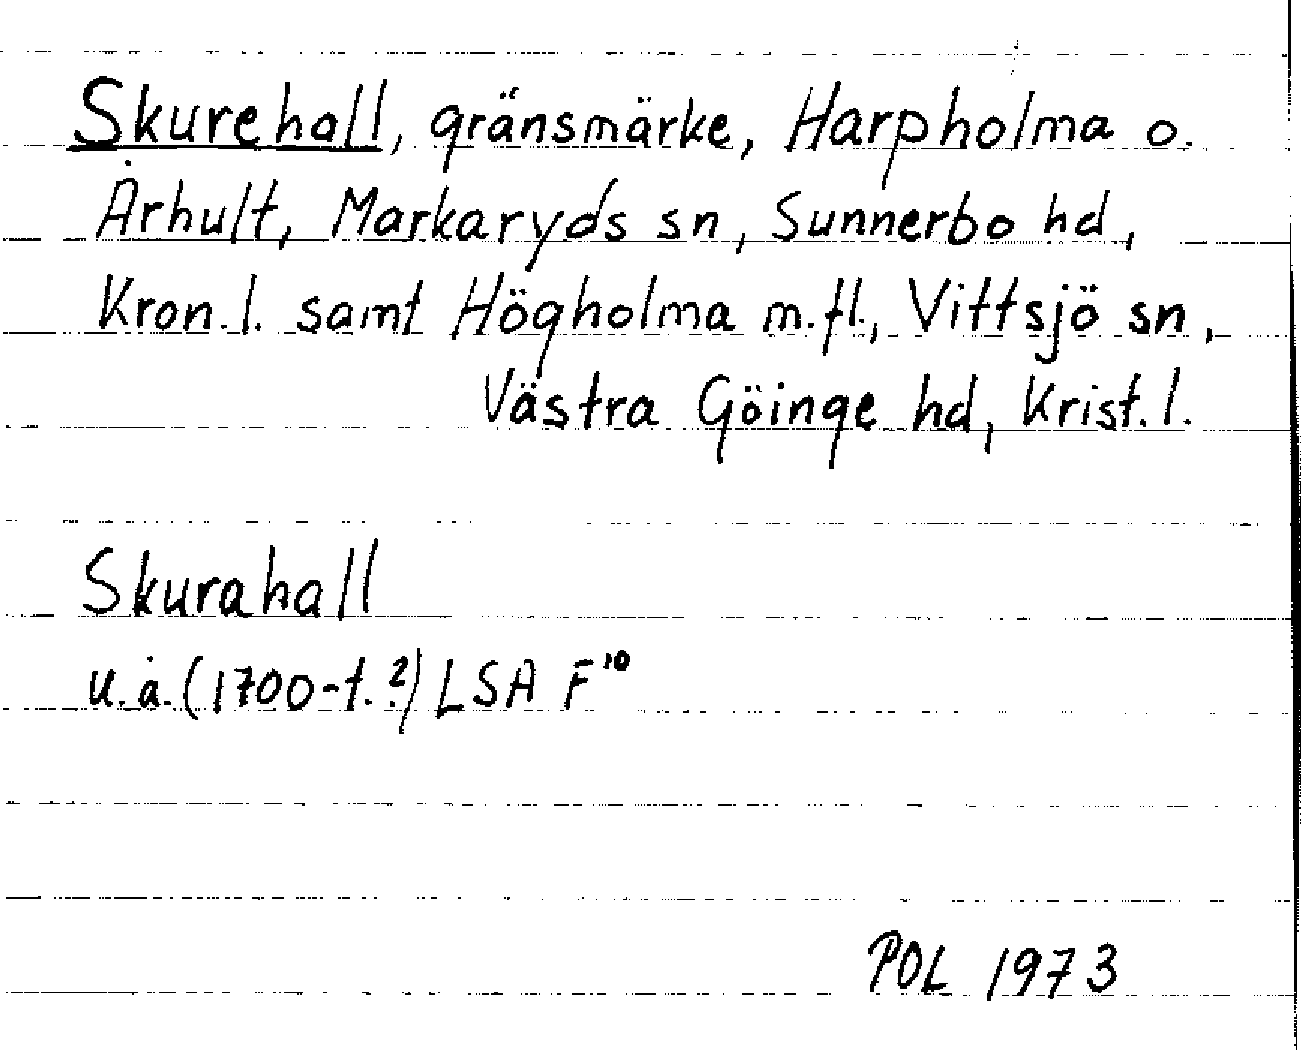 Skurehall, gränsmärke, Harpholma o.
Århult, Markaryds sn, Sunnerbo hd,
Kron. l. samt Högholma m.fl., Vittsjö sn,
Västra Göinge hd, Krist. l.
Skurahall
u.å. (1700-t.?) LSA F¹⁰
POL 1973